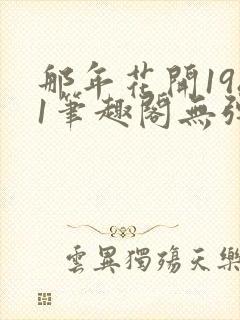 那年花開19
1筆趣閣無
雲異獨殤天樂